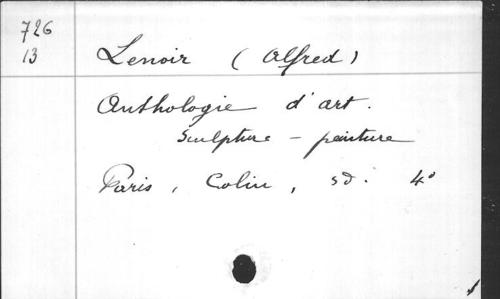 726
13
Lenoir (Alfred)
Anthologie d'art.
Sculpture – peinture
Paris, Colin, sd. 4°